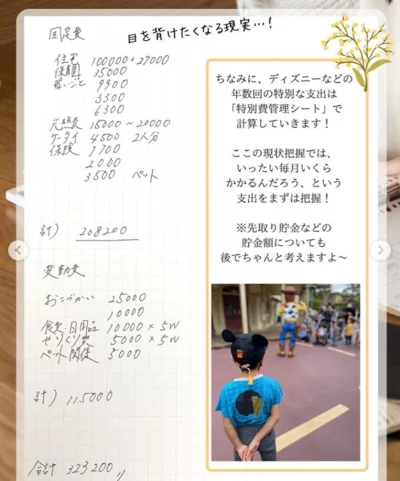 目を背けたくなる現実…!
固定費
住宅 100000+27000
保育園 35000
習いごと 9900
3300
6300
光熱費 15000~20000
ケータイ 4500 2人分
保険 7700
2000
3500 ペット
計) 208200
変動費
おこづかい 25000
10000
食費・日用品 10000×5W
やりくり費 5000×5W
ペット関係 5000
計) 115000
合計 323200
ちなみに、ディズニーなどの
年数回の特別な支出は
「特別費管理シート」で
計算していきます!
ここの現状把握では、
いったい毎月いくら
かかるんだろう、という
支出をまずは把握!
※先取り貯金などの
貯金額についても
後でちゃんと考えますよ~